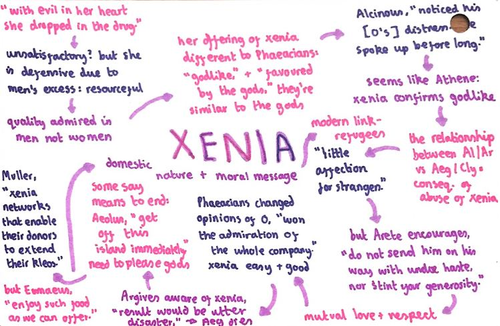 "with evil in her heart
she dropped in the drug"
unsatisfactory? but she
is defensive due to
men's excess: resourceful
quality admired in
men not women
her offering of xenia
different to Phaeacians:
"godlike," + "favoured
by the gods," they're
similar to the gods
Alcinous, "noticed his
[O's] distress
spoke up before long."
seems like Athene:
xenia confirms godlike
XENIA
nature + moral message
modern link-
refugees
"little
affection
for strangers."
the relationship
between Al/Ar
vs Aeg/Cly =
conseq. of
abuse of xenia
but Arete encourages,
"do not send him on his
way with undue haste,
nor stint your generosity."
mutual love + respect
Phaeacians changed
opinions of O, "won
the admiration of
the whole company"
xenia easy + good
Argives aware of xenia,
"result would be utter
disaster,"
domestic
some say
means to end:
Aeolus, "get
off this
island immediately"
need to please gods
"xenia
networks
that enable
their donors
to extend
their kleos"
but Eumaeus,
"enjoy such good
as we can offer."